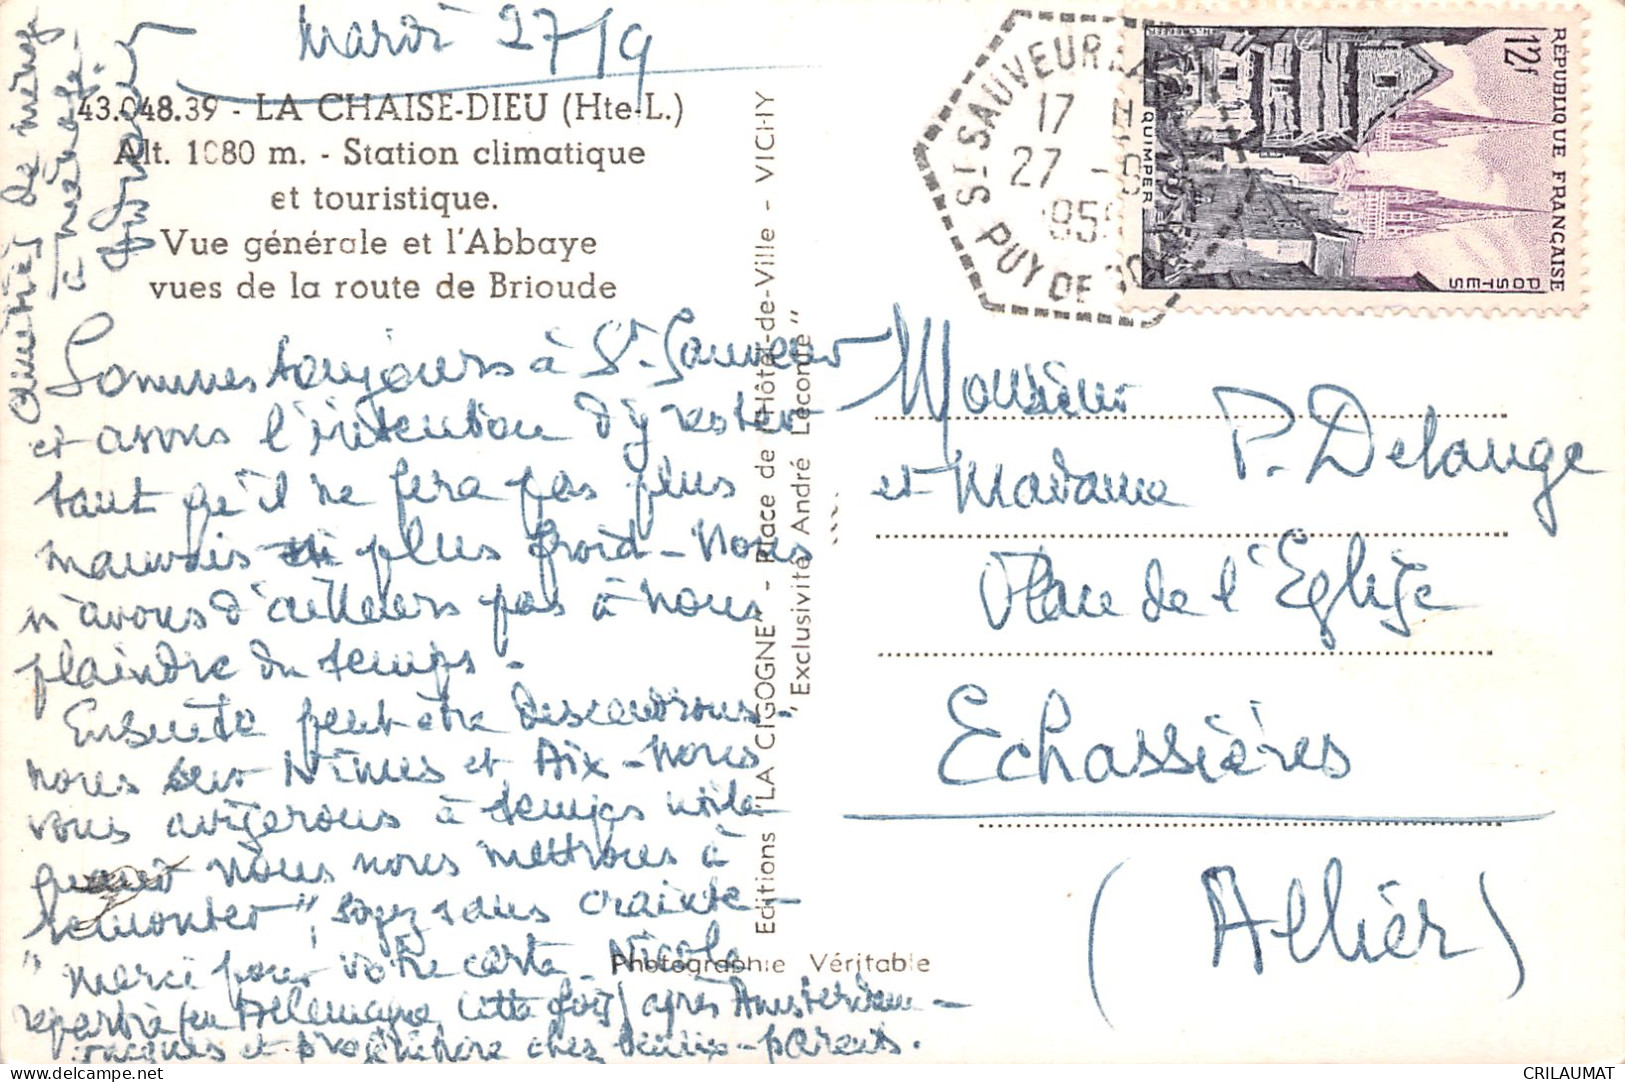 Mardi 27/9
43.048.39 - LA CHAISE-DIEU (Hte-L.)
Alt. 1080 m. - Station climatique
et touristique.
Vue générale et l'Abbaye
vues de la route de Brioude
Sommes toujours à St. Sauveur
et avons l'intention d'y rester
tant qu'il ne fera pas plus
mauvais ni plus froid - Nous
n'avons d'ailleurs pas à nous
plaindre du temps -
Ensuite peut-être descendrons-
nous sur Nîmes et Aix - Nous
vous aviserons à temps
quand nous nous mettrons à
remonter", soyez sans crainte -
"Merci pour votre carte - Nicole
repartie en Allemagne cette fois / après Amsterdam -
et chez -parents.
Amitiés de même
Editions "LA CIGOGNE" - Place de l'Hôtel-de-Ville - VICHY
"Exclusivité André Leconte"
Photographie Véritable
ST SAUVEUR LA
17 H
27 -9
195
PUY DE DO
RÉPUBLIQUE FRANÇAISE
12f
POSTES
QUIMPER
Monsieur
et Madame P. Delange
Place de l'Eglise
Echassières
(Allier)
CRILAUMAT